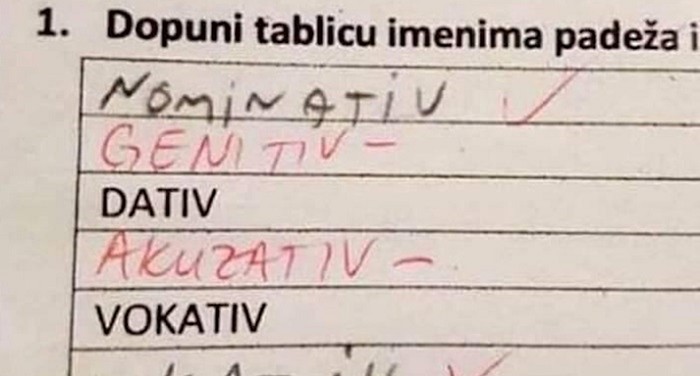 1. Dopuni tablicu imenima padeža i
NOMINATIV
GENITIV –
DATIV
AKUZATIV –
VOKATIV